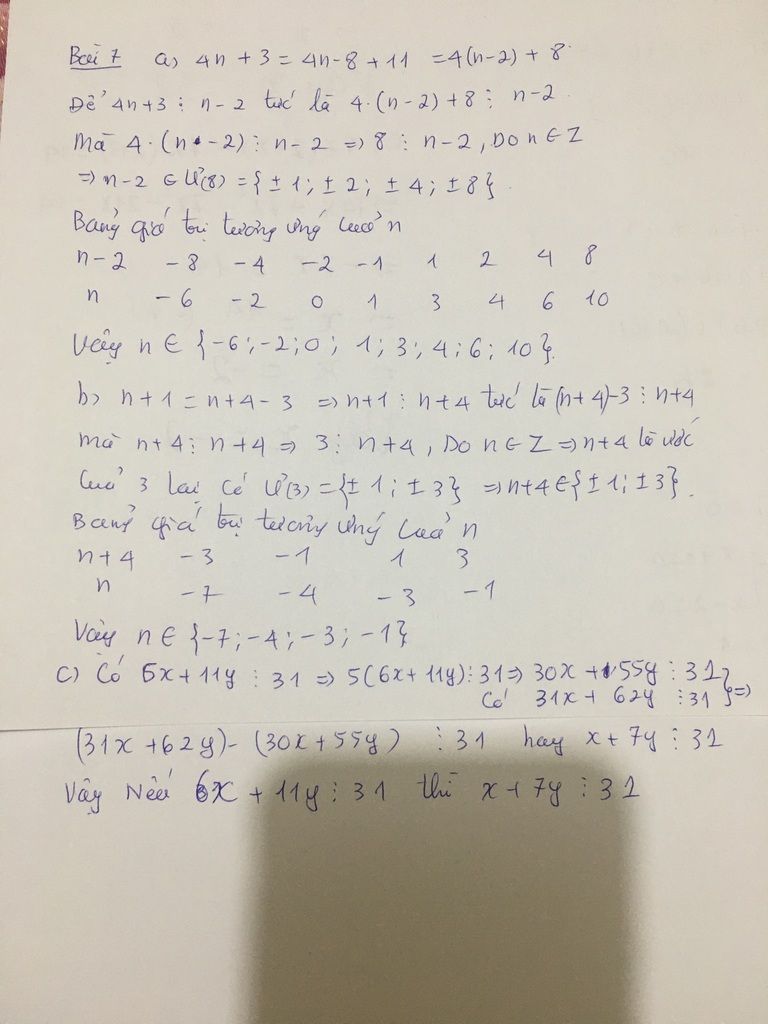 Bài 7 a) 4n + 3 = 4n - 8 + 11 = 4(n-2) + 8
Để 4n+3 ⋮ n-2 tức là 4.(n-2)+8 ⋮ n-2
mà 4.(n-2) ⋮ n-2 => 8 ⋮ n-2, Do n ∈ Z
=> n-2 ∈ Ư(8) = {±1; ±2; ±4; ±8}.
Bảng giá trị tương ứng của n
n-2 -8 -4 -2 -1 1 2 4 8
n -6 -2 0 1 3 4 6 10
Vậy n ∈ {-6;-2;0; 1;3;4;6;10}.
b) n+1 = n+4-3 => n+1 ⋮ n+4 tức là (n+4)-3 ⋮ n+4
mà n+4 ⋮ n+4 => 3 ⋮ n+4, Do n ∈ Z => n+4 là ước
của 3 lại có Ư(3) = {±1; ±3} => n+4 ∈ {±1; ±3}.
Bảng giá trị tương ứng của n
n+4 -3 -1 1 3
n -7 -4 -3 -1
Vậy n ∈ {-7;-4;-3;-1}
c) Có 6x+11y ⋮ 31 => 5(6x+11y) ⋮ 31 => 30x+55y ⋮ 31
Có 31x+62y ⋮ 31 } =>
(31x+62y)-(30x+55y) ⋮ 31 hay x+7y ⋮ 31
Vậy Nếu 6x+11y ⋮ 31 thì x+7y ⋮ 31